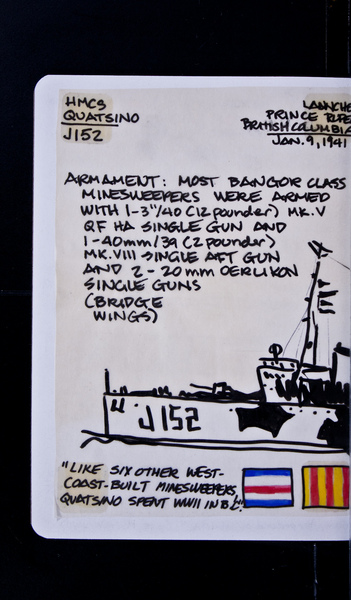 HMCS
QUATSINO
J152
PRINCE
BRITISH COLUMBIA
JAN. 9, 1941
ARMAMENT: MOST BANGOR CLASS
MINESWEEPERS WERE ARMED
WITH 1-3"/40 (12 pounder) MK.V
QF HA SINGLE GUN AND
1-40mm/39 (2 pounder)
MK.VIII SINGLE AFT GUN
AND 2-20mm OERLIKON
SINGLE GUNS
(BRIDGE
WINGS)
J152
"LIKE SIX OTHER WEST-
COAST-BUILT MINESWEEPERS,
QUATSINO SPENT WWII IN B.C."